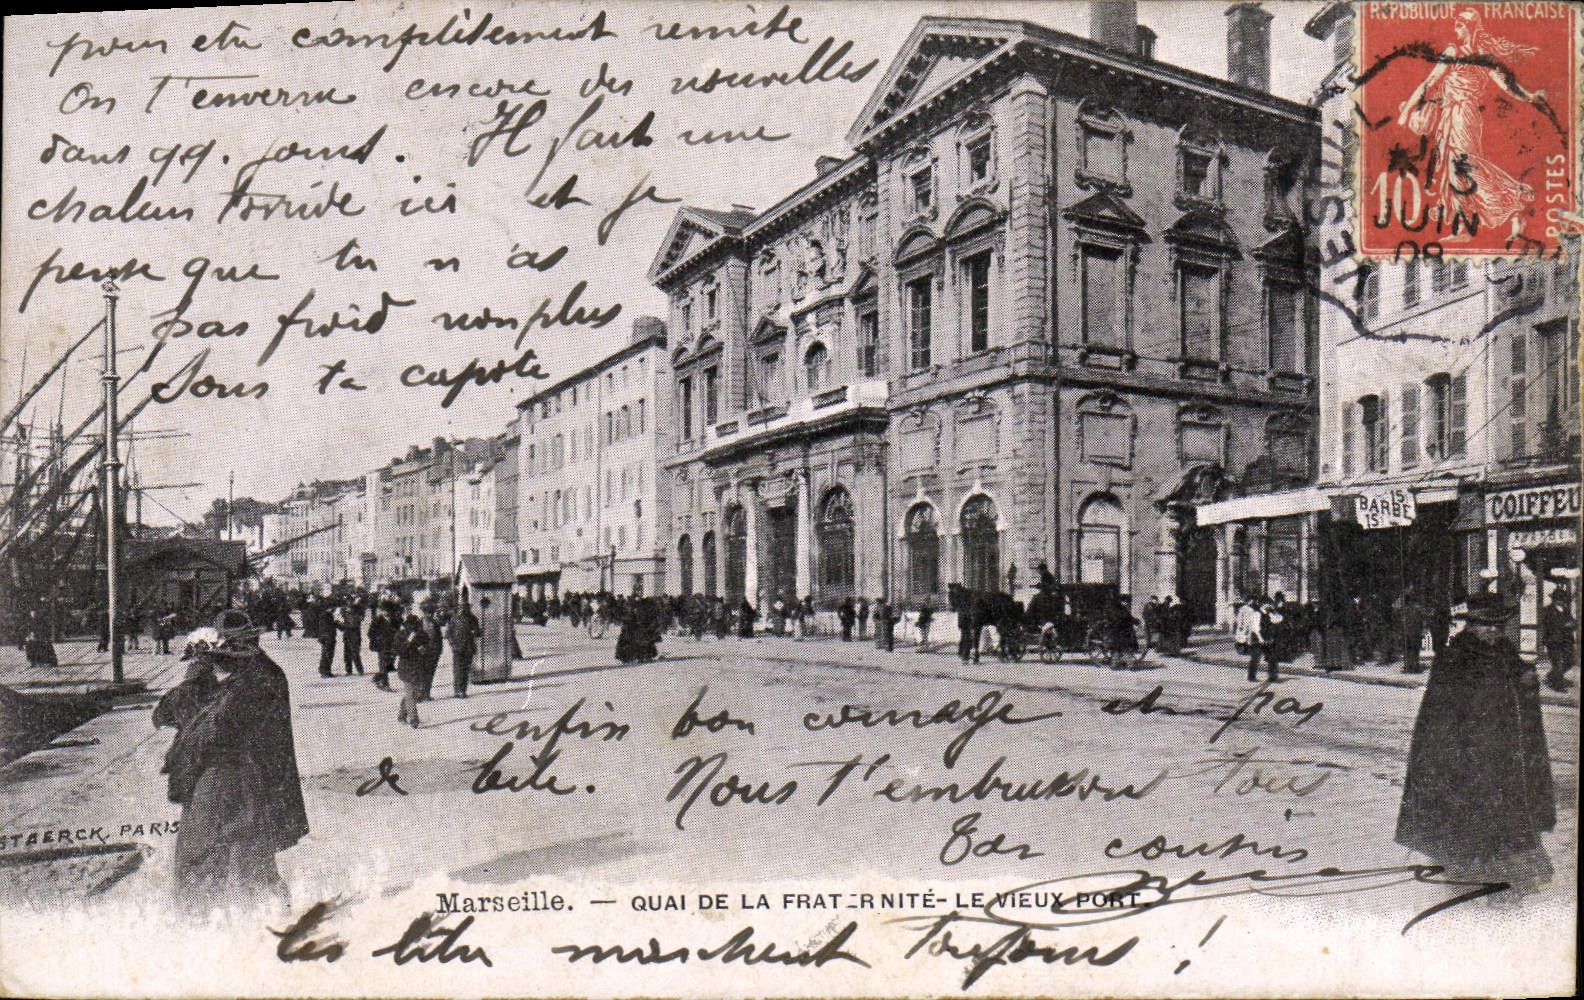 pour etre complètement remise
On t'enverra encore des nouvelles
dans qq. jours. Il fait une
chaleur torride ici et je
pense que tu n'as
pas froid non plus
sous ta capote
RÉPUBLIQUE FRANÇAISE
10
POSTES
13
JUIN
08
BARBE
15
15
COIFFEU
enfin bon courage et pas
de bile. Nous t'embrassons tous
Ton cousin
STAERCK, PARIS
Marseille. — QUAI DE LA FRATERNITÉ - LE VIEUX PORT.
les marchent toujours !